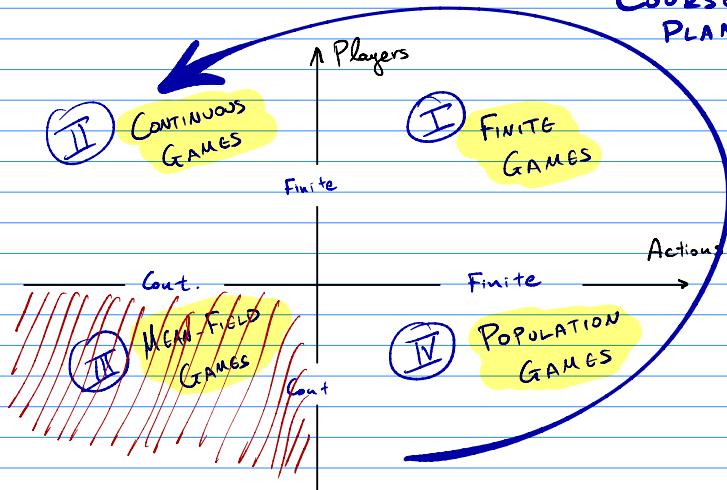 COURSE
PLAN
Players
II CONTINUOUS
GAMES
I FINITE
GAMES
Finite
Actions
Cont.
Finite
III MEAN-FIELD
GAMES
IV POPULATION
GAMES
Cont